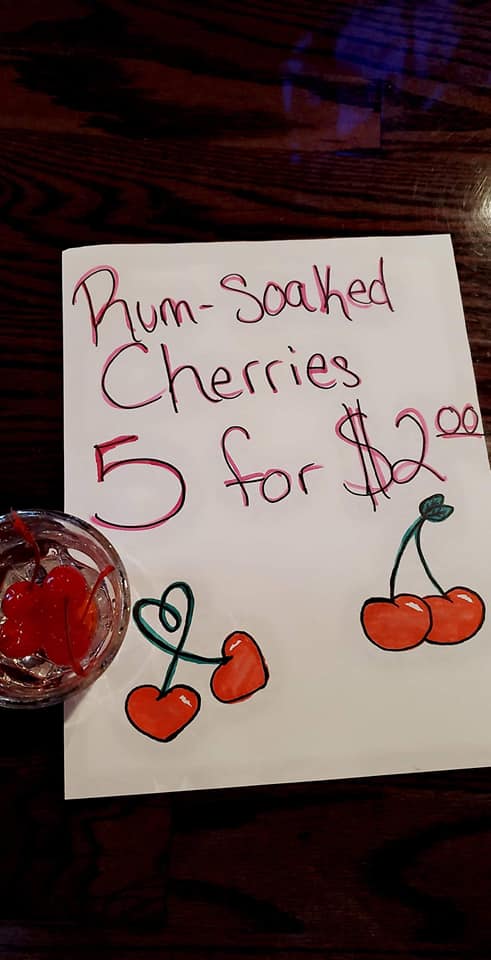 Rum-Soaked
Cherries
5 for $2.00